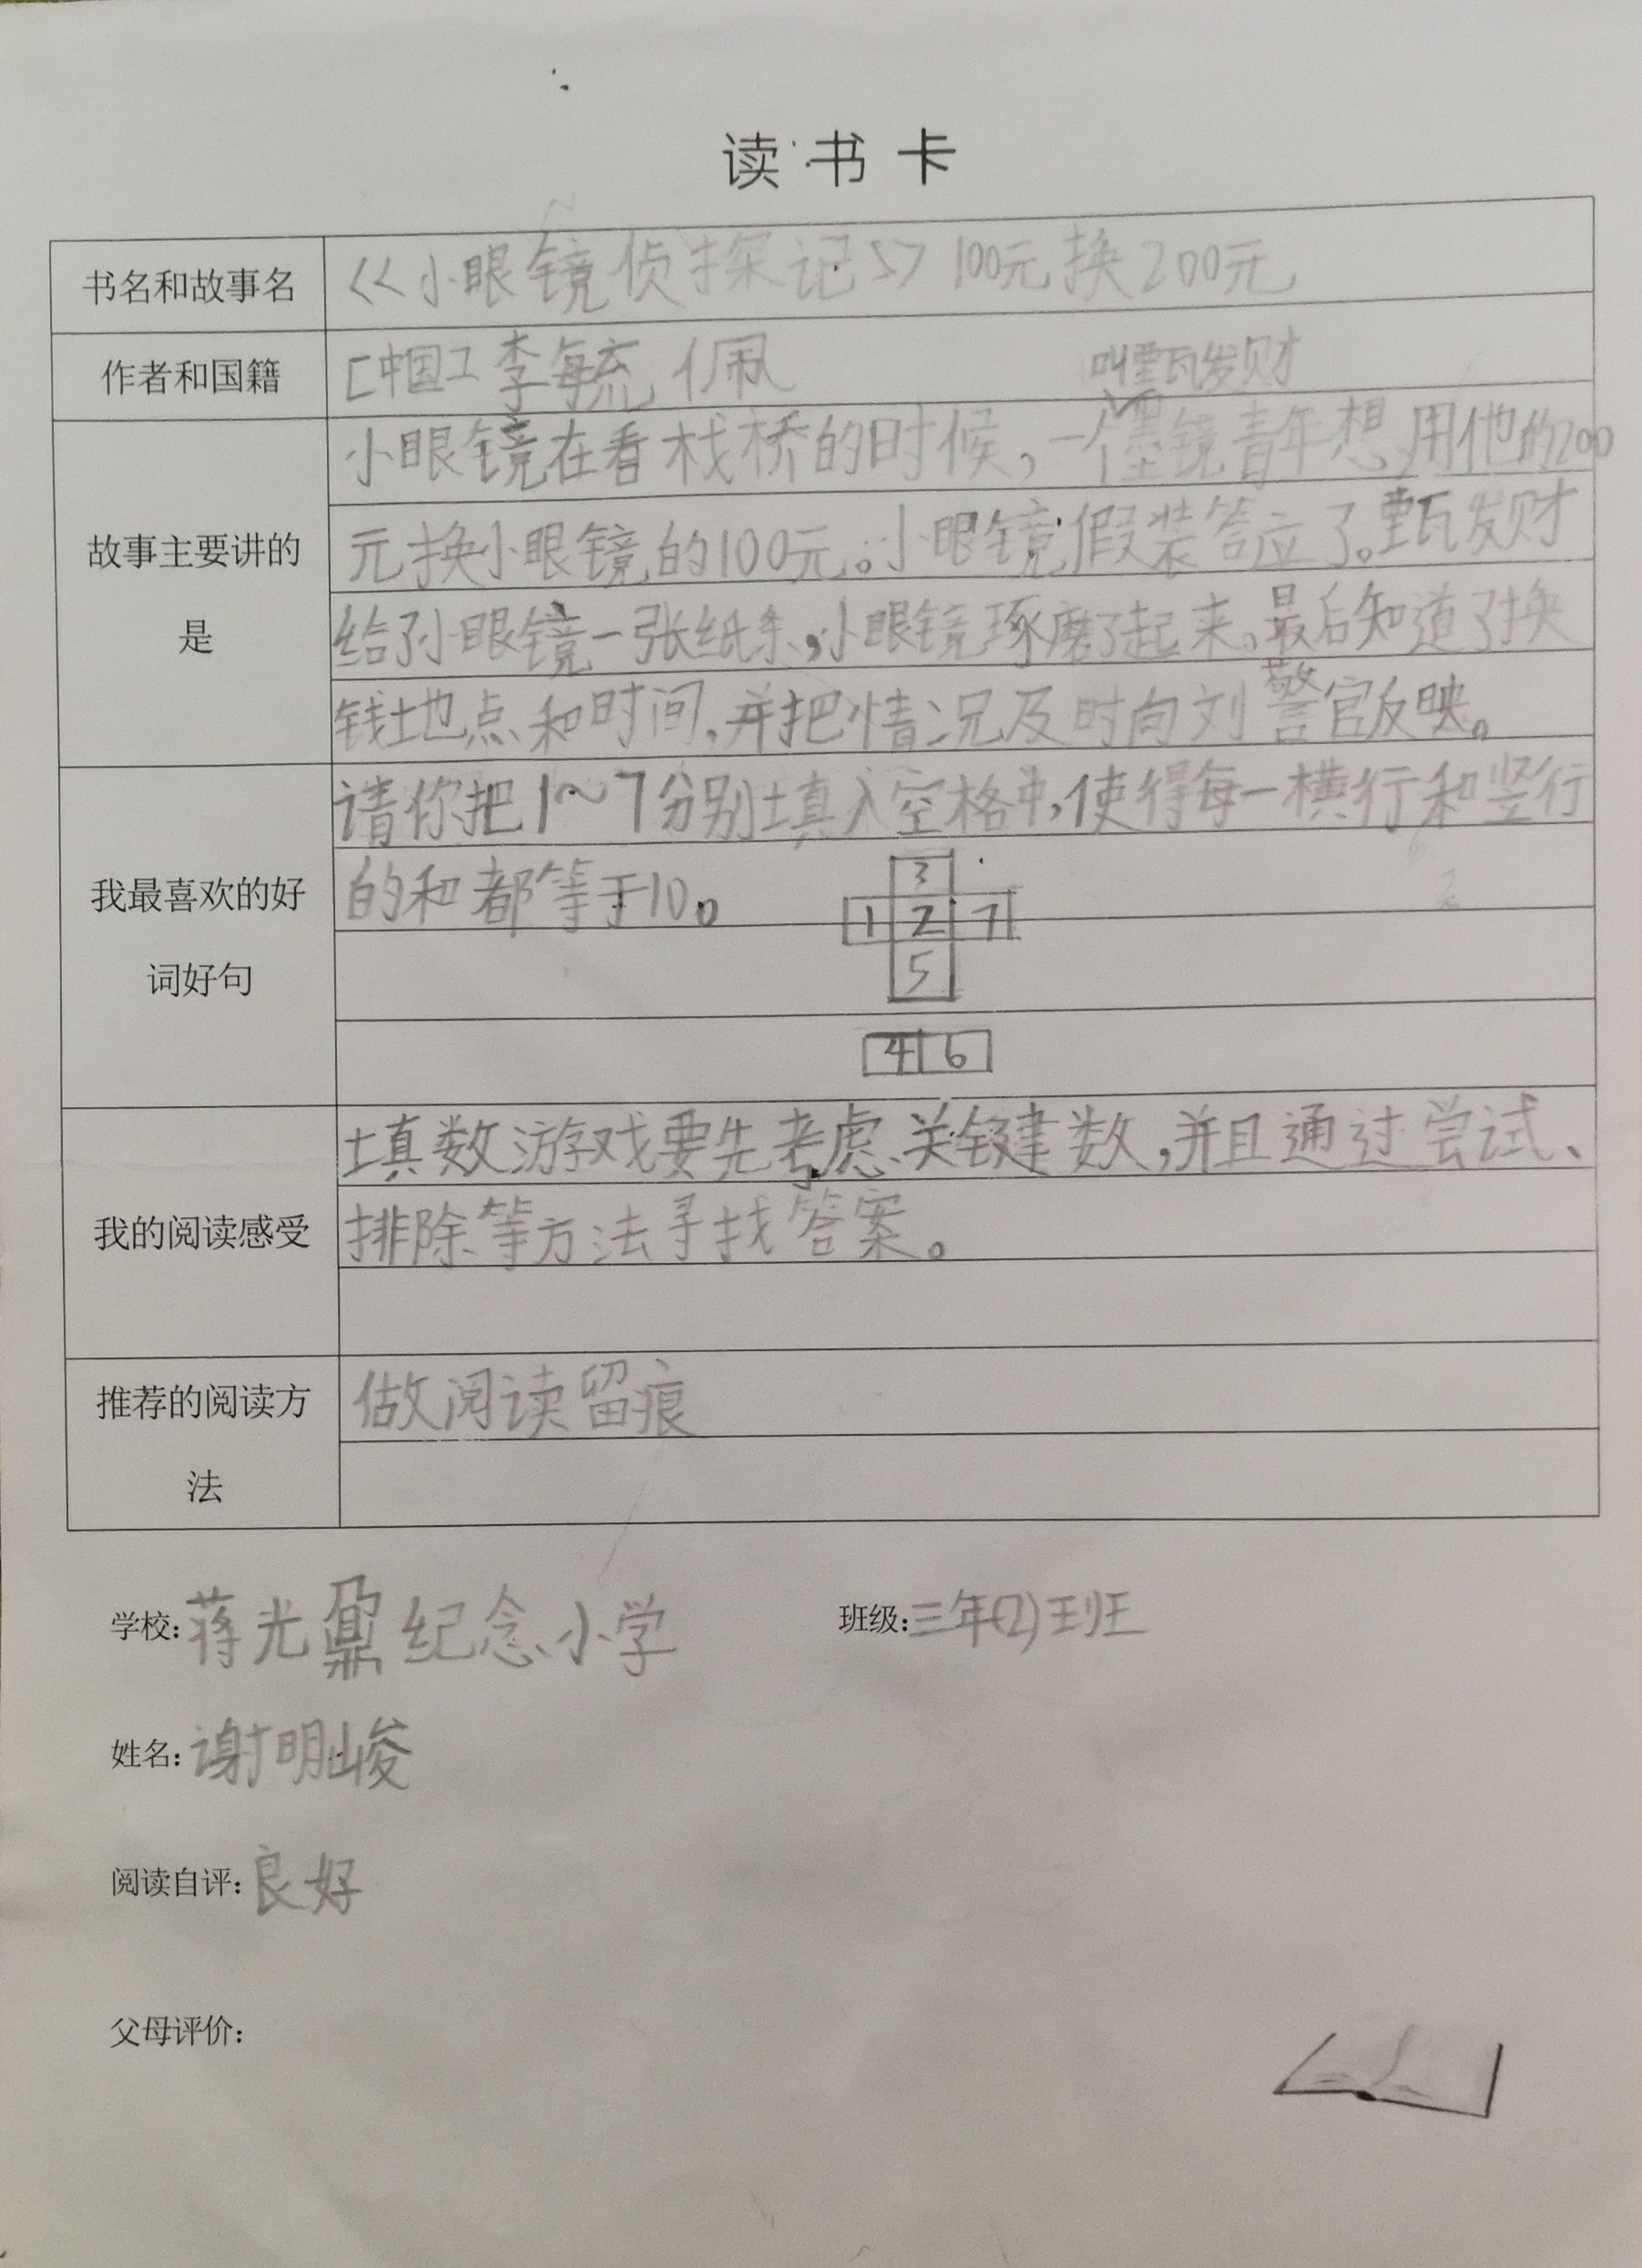 读书卡
书名和故事名
《小眼镜侦探记》100元换200元
作者和国籍
[中国]李毓佩
叫甄发财
故事主要讲的是
小眼镜在看栈桥的时候,一个墨镜青年想用他的200
元换小眼镜的100元。小眼镜假装答应了。甄发财
给了小眼镜一张纸条,小眼镜琢磨了起来,最后知道了换
钱地点和时间,并把情况及时向刘警官反映。
我最喜欢的好词好句
请你把1~7分别填入空格中,使得每一横行和竖行
的和都等于10。
3
1 2 7
5
4 6
我的阅读感受
填数游戏要先考虑关键数,并且通过尝试、
排除等方法寻找答案。
推荐的阅读方法
做阅读留痕
学校:蒋光鼐纪念小学 班级:三年(2)班
姓名:谢明峻
阅读自评:良好
父母评价: